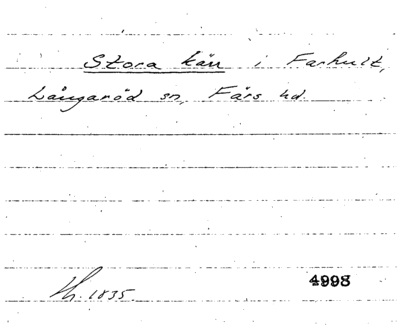 Stora kärr i Farhult,
Långaröd sn, Färs hd.
Th. 1835.
4998